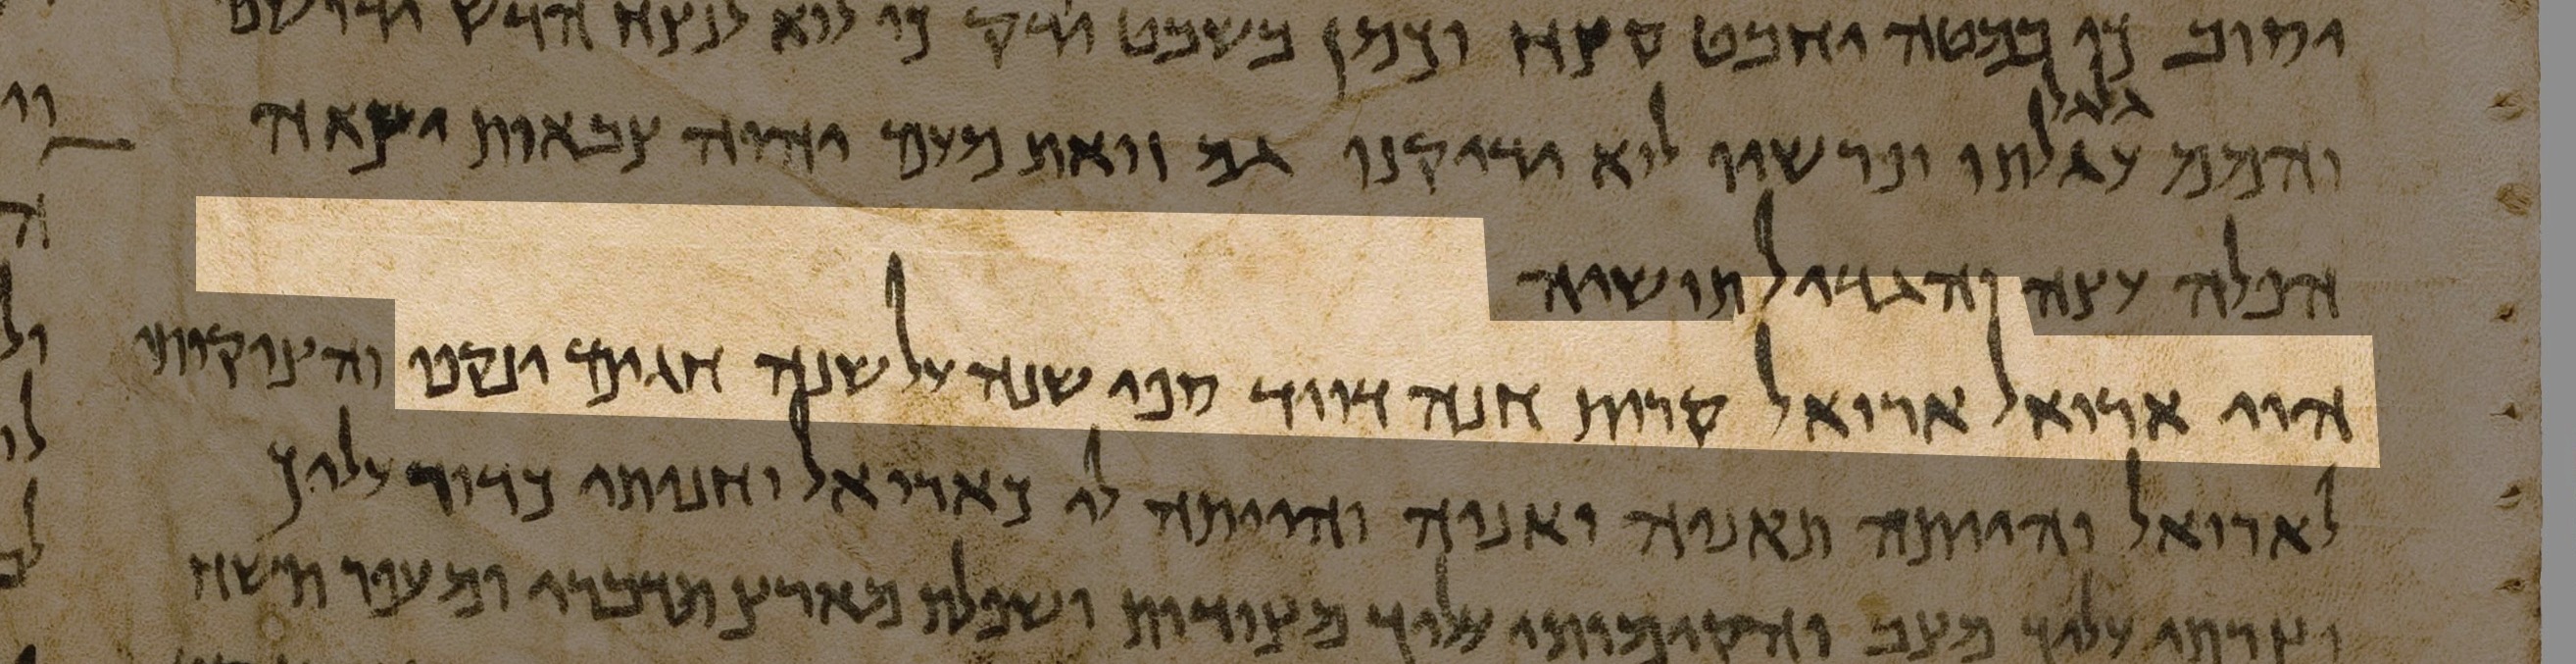 יסוב כי במטה יחבט קצח וכמן בשבט ודק כי לוא לנצח הדש
גלגל
והמם עגלתו ופרשיו לוא ידוקנו גם זואת מעם יהוה צבאות יצאה
הפלה עצה והגדיל תושיה
הוי אריאל אריאל קרית חנה דויד ספי שנה על שנה חגים ינקפו והציקותי
לאריאל והייתה תאניה ואניה והייתה לי כאריאל וחניתי כדור עליך
וצרתי עליך מצב והקימותי עליך מצורות ושפלת מארץ תדברי ומעפר תשח